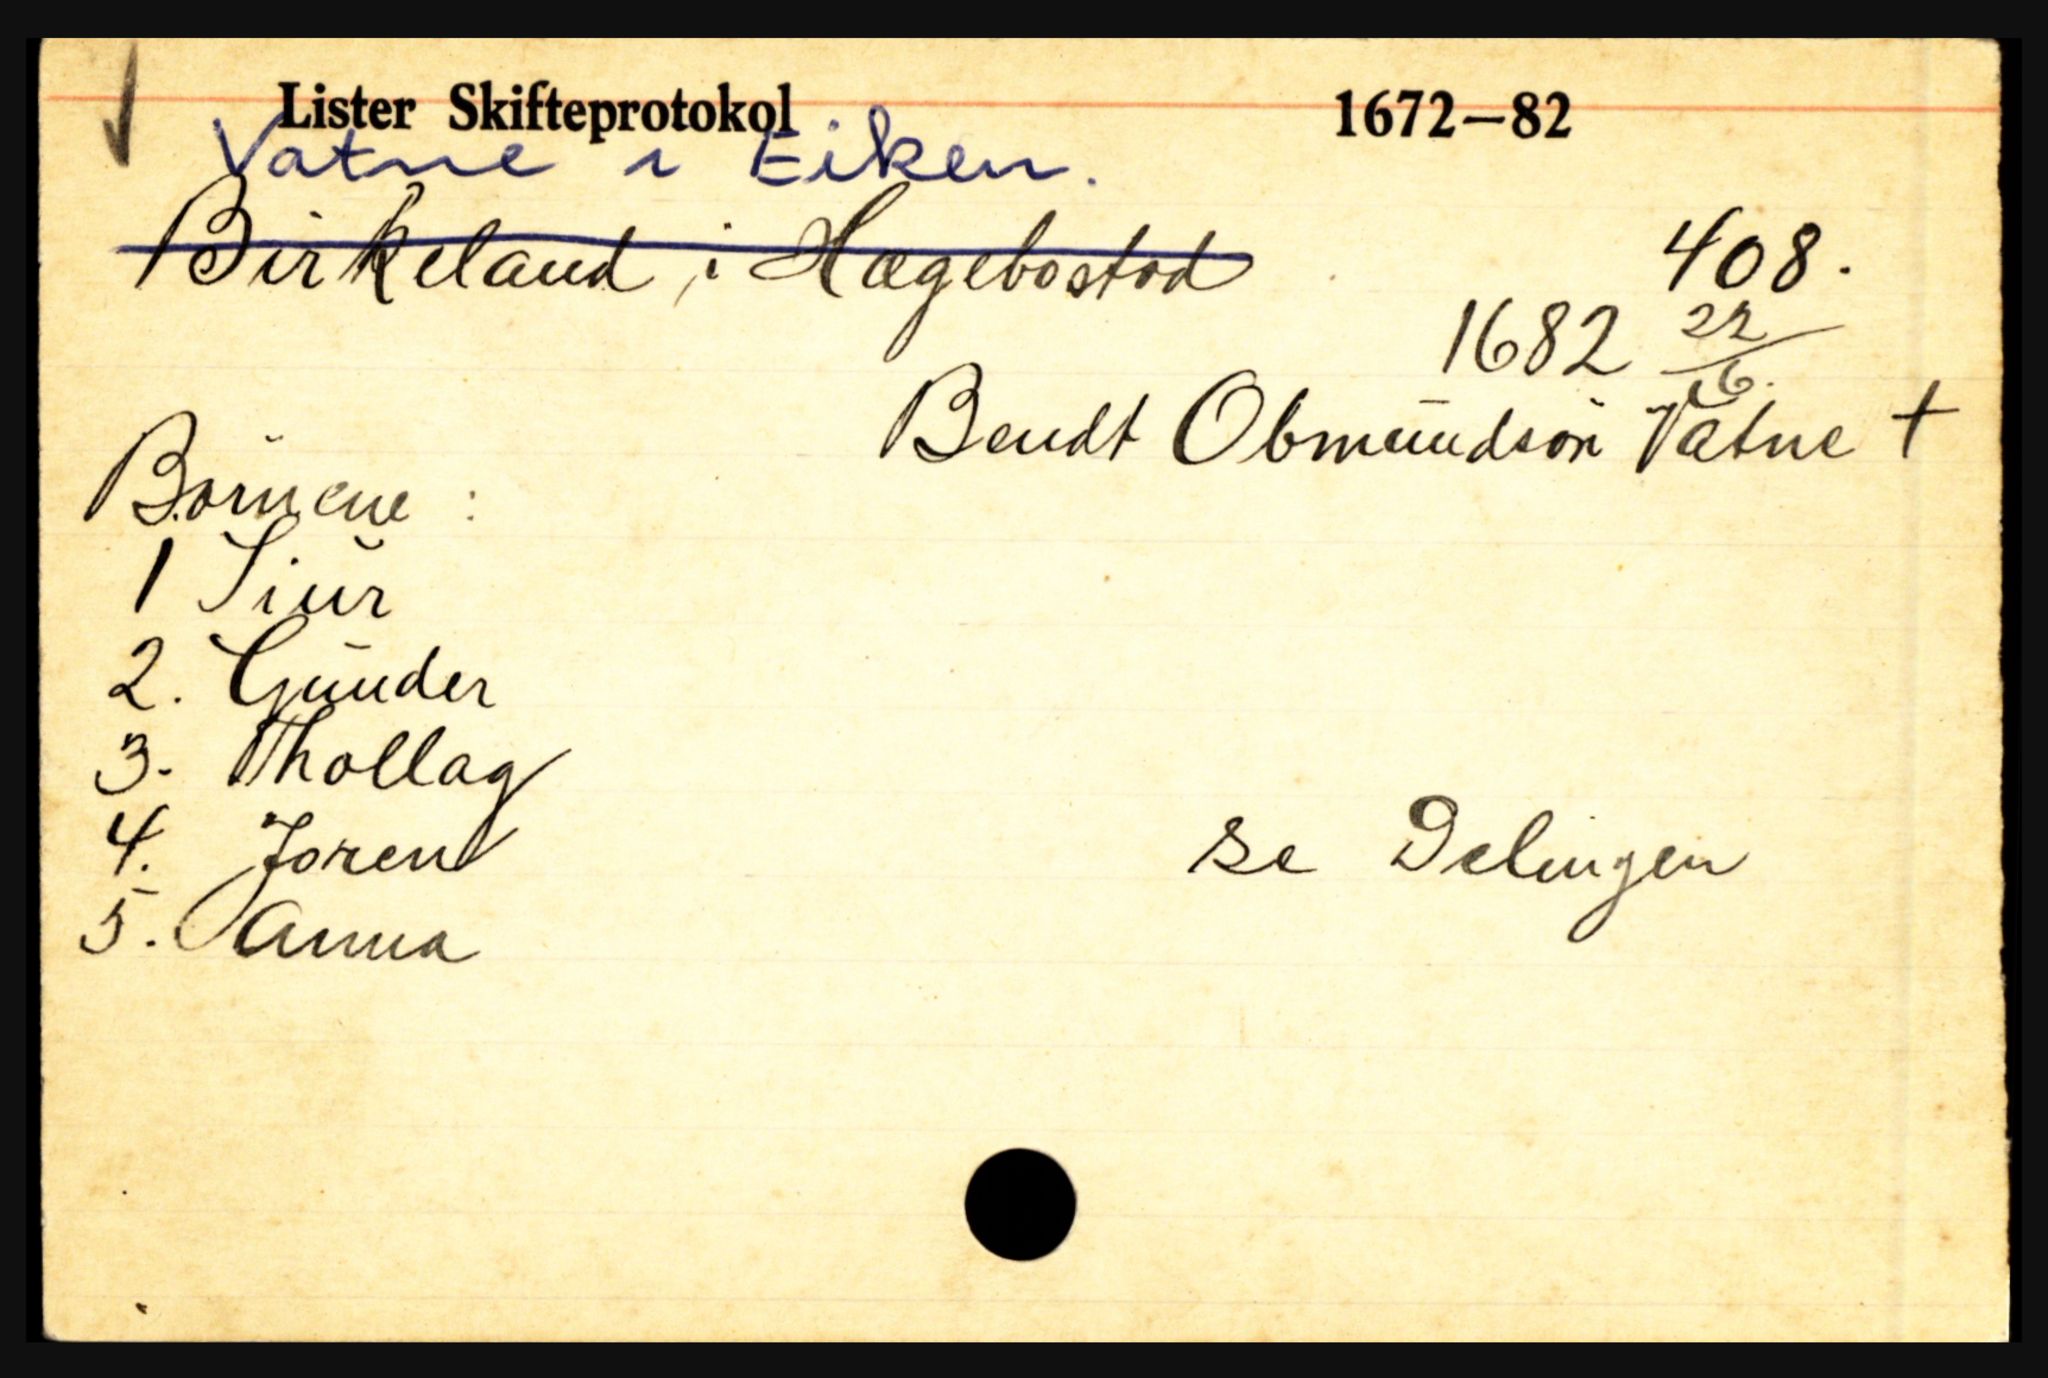 Lister Skifteprotokol 1672–82
Vatne i Eiken.
Birkeland i Hægebostad 408.
1682 22/6.
Bendt Obmŭndsön Vatne †
Börnene :
1 Siŭr
2. Gŭnder
3. Thollag
4. Joren se Delingen
5. Anna